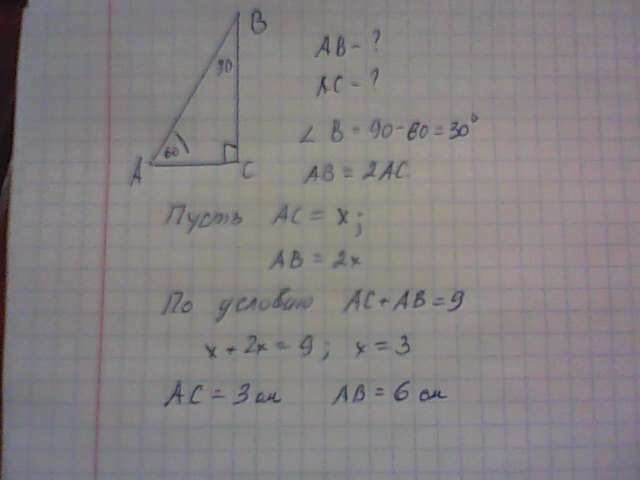 B
AB - ?
30
AC - ?
∠ B = 90 - 60 = 30°
60
A
C
AB = 2AC
Пусть AC = x;
AB = 2x
По условию AC + AB = 9
x + 2x = 9; x = 3
AC = 3 см AB = 6 см